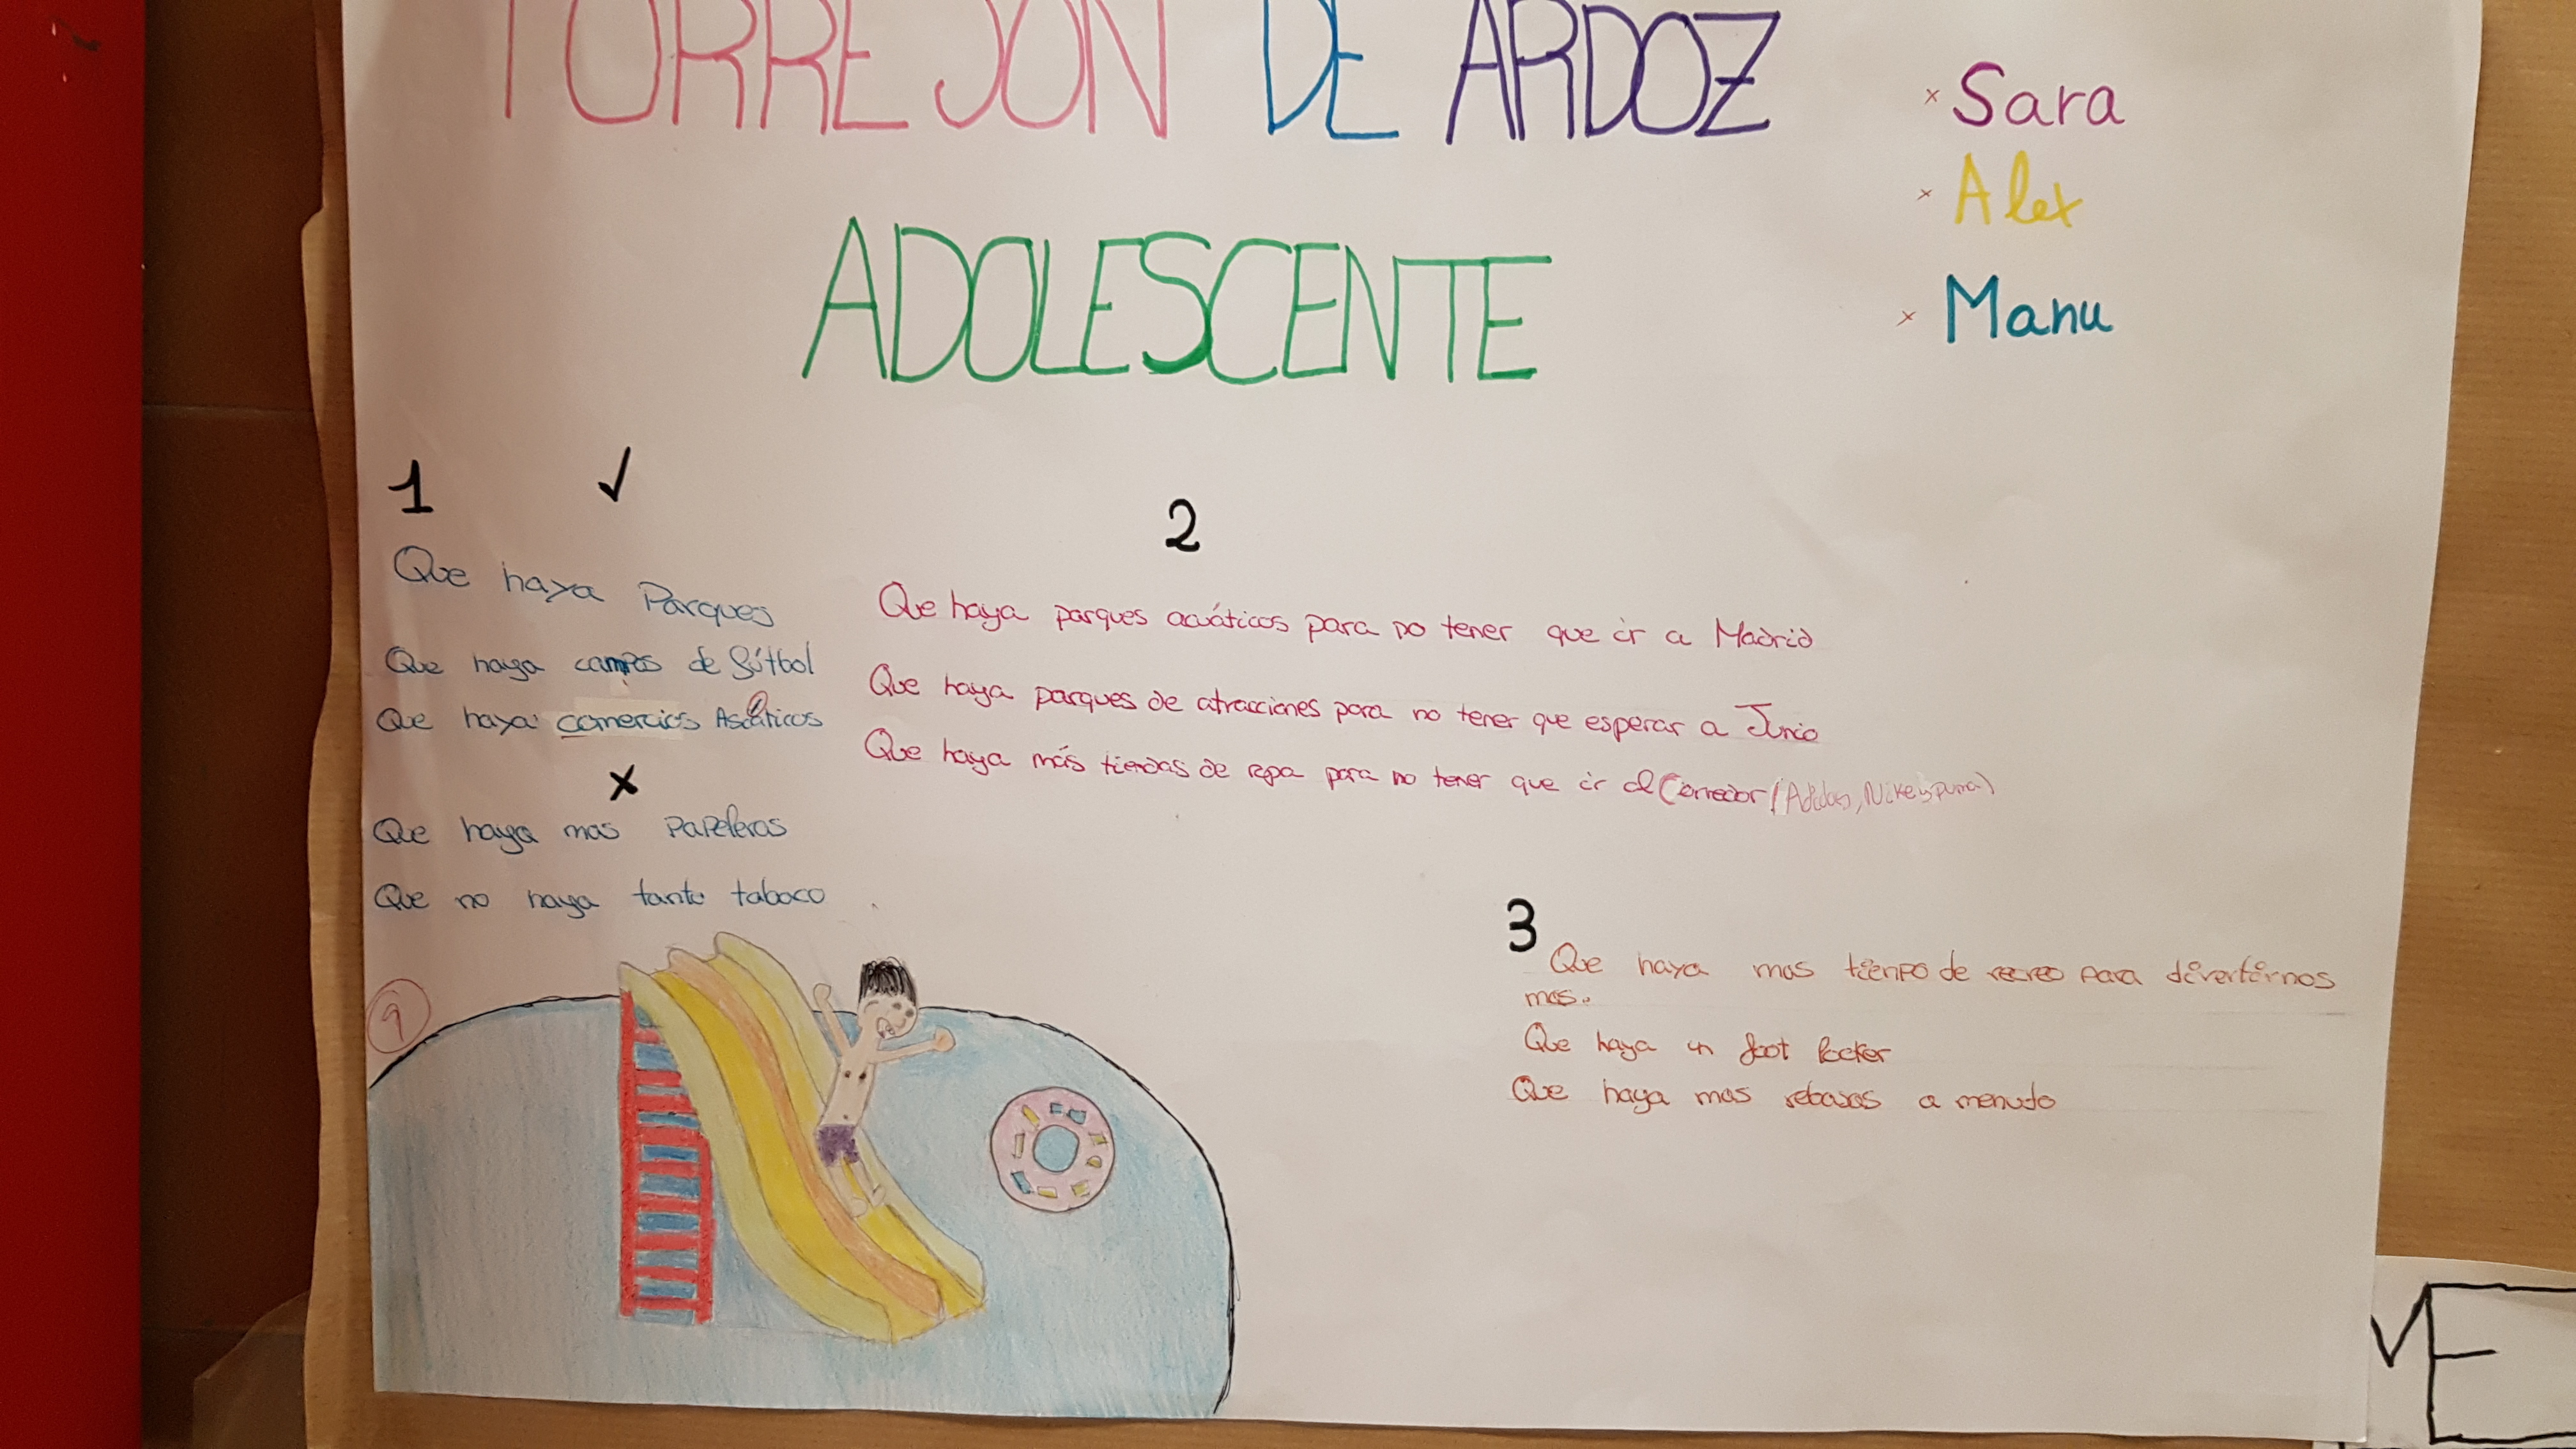 TORREJON DE ARDOZ
ADOLESCENTE
× Sara
× Alex
× Manu
1 ✓
Que haya Parques
Que haya campos de fútbol
Que haya comercios Asiáticos
x
Que haya mas papeleras
Que no haya tanto tabaco
9
2
Que haya parques acuáticos para no tener que ir a Madrid
Que haya parques de atracciones para no tener que esperar a Junio
Que haya más tiendas de ropa para no tener que ir al Corredor (Adidas, Nike y puma)
3
Que haya mas tienpo de recreo para divertirnos
mas.
Que haya un foot locker
Que haya mas rebajas a menudo
ME